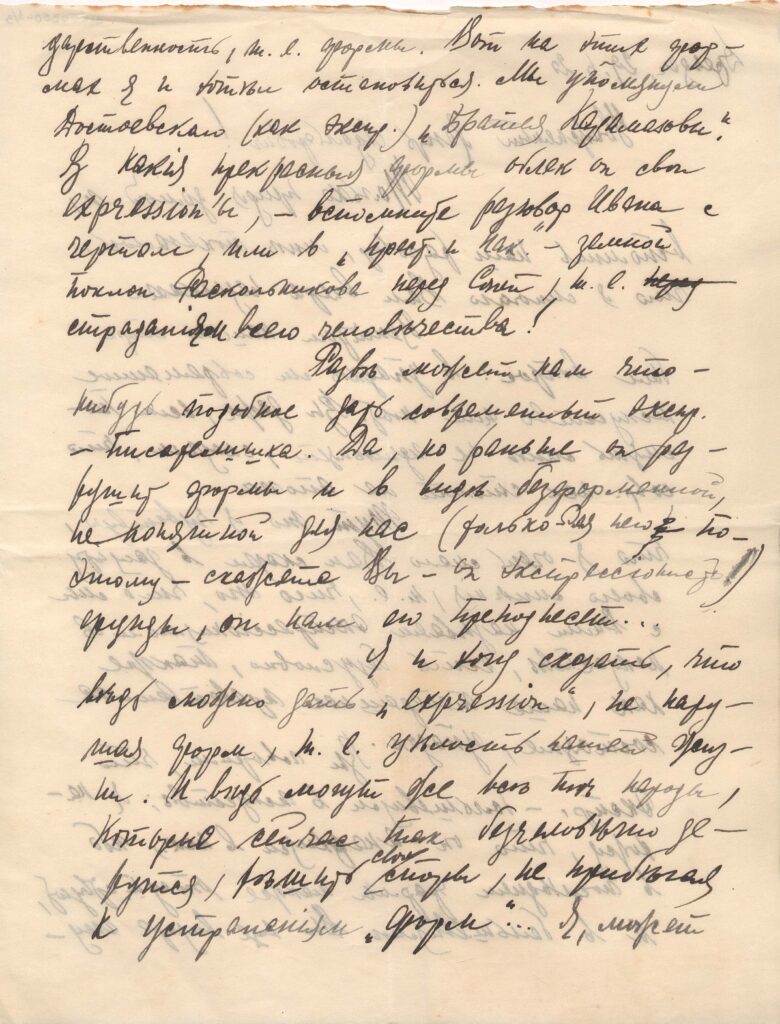 дарственность, т. е. формы. Вот на этих фор-
мах я и хотел остановиться. Мы упомянули
Достоевскаго (как экспр.) „Братья Карамазовы".
В какія прекрасныя формы облек он свои
expression'ы, – вспомните разговор Ивана с
чертом, или в „Прест. и Нак." – земной
поклон Раскольникова перед Соней, т. е. перед
страданіями всего человѣчества!
Развѣ может нам что –
нибудь подобное дать современный экспр.
– писателишка. Да, но раньше он раз –
рушит формы и в видѣ безформенной,
не понятной для нас (только для него и по-
этому – скажете Вы – он экспрессіонист)
ерунды, он нам его преподнесет...
Я и хочу сказать, что
вѣдь можно дать „expression", не нару –
шая форм, т. е. цѣлость нашей жиз –
ни. И вѣдь могут же всѣ тѣ народы,
которые сейчас так безчеловѣчно де –
рутся, рѣшить свои споры, не прибѣгая
к устраненіям „форм"... Я, может